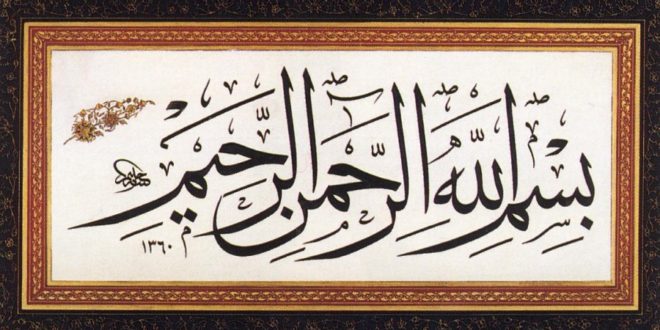 بِسْمِ اللَّهِ الرَّحْمٰنِ الرَّحِيمِ
١٣٦٠